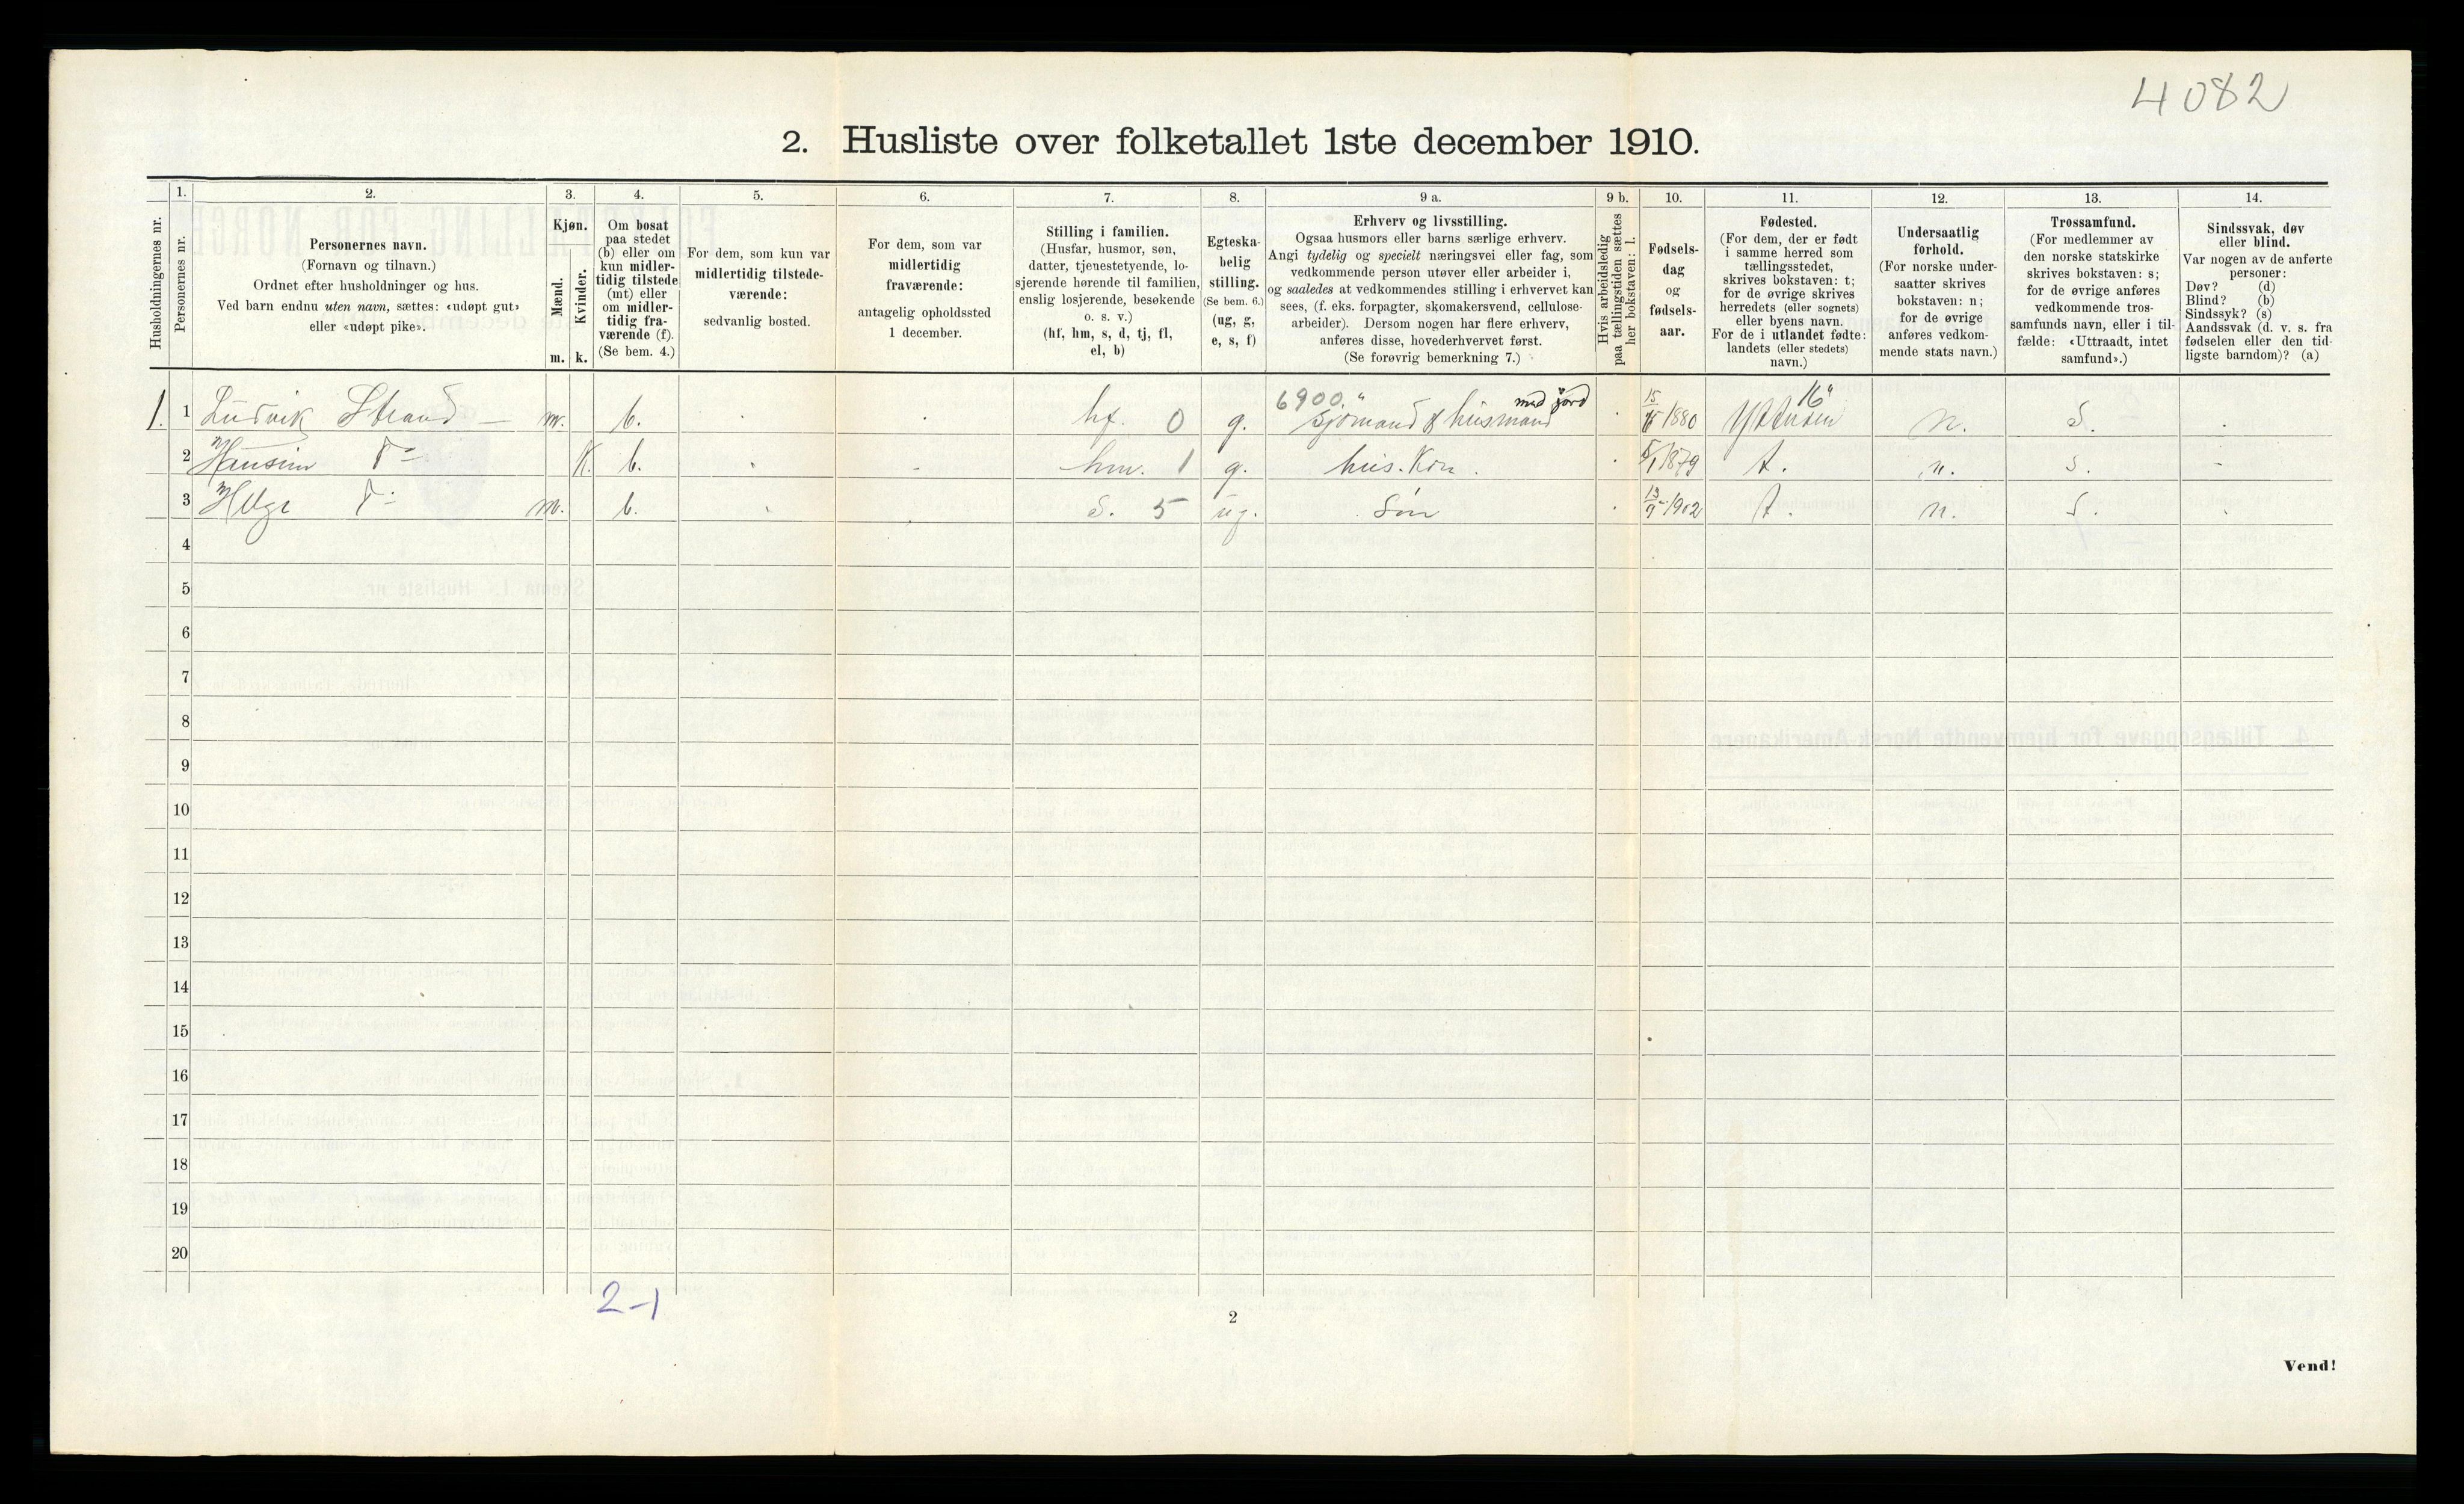 4082
2. Husliste over folketallet 1ste december 1910.
Husholdningernes nr.
1.
Personernes nr.
2.
Personernes navn.
(Fornavn og tilnavn.)
Ordnet efter husholdninger og hus.
Ved barn endnu uten navn, sættes: «udøpt gut»
eller «udøpt pike».
3.
Kjøn.
Mænd.
m.
Kvinder.
k.
4.
Om bosat
paa stedet
(b) eller om
kun midler-
tidig tilstede
(mt) eller
om midler-
tidig fra-
værende (f).
(Se bem. 4.)
5.
For dem, som kun var
midlertidig tilstede-
værende:
sedvanlig bosted.
6.
For dem, som var
midlertidig
fraværende:
antagelig opholdssted
1 december.
7.
Stilling i familien.
(Husfar, husmor, søn,
datter, tjenestetyende, lo-
sjerende hørende til familien,
enslig losjerende, besøkende
o. s. v.)
(hf, hm, s, d, tj, fl,
el, b)
8.
Egteska-
belig
stilling.
(Se bem. 6.)
(ug, g,
e, s, f)
9 a.
Erhverv og livsstilling.
Ogsaa husmors eller barns særlige erhverv.
Angi tydelig og specielt næringsvei eller fag, som
vedkommende person utøver eller arbeider i,
og saaledes at vedkommendes stilling i erhvervet kan
sees, (f. eks. forpagter, skomakersvend, cellulose-
arbeider). Dersom nogen har flere erhverv,
anføres disse, hovederhvervet først.
(Se forøvrig bemerkning 7.)
9 b.
Hvis arbeidsledig
paa tællingstiden sættes
her bokstaven: l.
10.
Fødsels-
dag
og
fødsels-
aar.
11.
Fødested.
(For dem, der er født
i samme herred som
tællingsstedet,
skrives bokstaven: t;
for de øvrige skrives
herredets (eller sognets)
eller byens navn.
For de i utlandet fødte:
landets (eller stedets)
navn.)
12.
Undersaatlig
forhold.
(For norske under-
saatter skrives
bokstaven: n;
for de øvrige
anføres vedkom-
mende stats navn.)
13.
Trossamfund.
(For medlemmer av
den norske statskirke
skrives bokstaven: s;
for de øvrige anføres
vedkommende tros-
samfunds navn, eller i til-
fælde: «Uttraadt, intet
samfund».)
14.
Sindssvak, døv
eller blind.
Var nogen av de anførte
personer:
Døv? (d)
Blind? (b)
Sindssyk? (s)
Aandssvak (d. v. s. fra
fødselen eller den tid-
ligste barndom)? (a)
6900." med jord 16"
1. 1 Ludvik Strand — m. b. hf. 0 g. sjömand & husmand 1880 n. S.
2 K. b. hm. 1 g. hus. Kon. 1879 t. n. s.
3 Helge m. b. S. 5 ug. Sön 13/9 1902 t. n. S.
4
5
6
7
8
9
10
11
12
13
14
15
16
17
18
19
20
2-1
2
Vend!